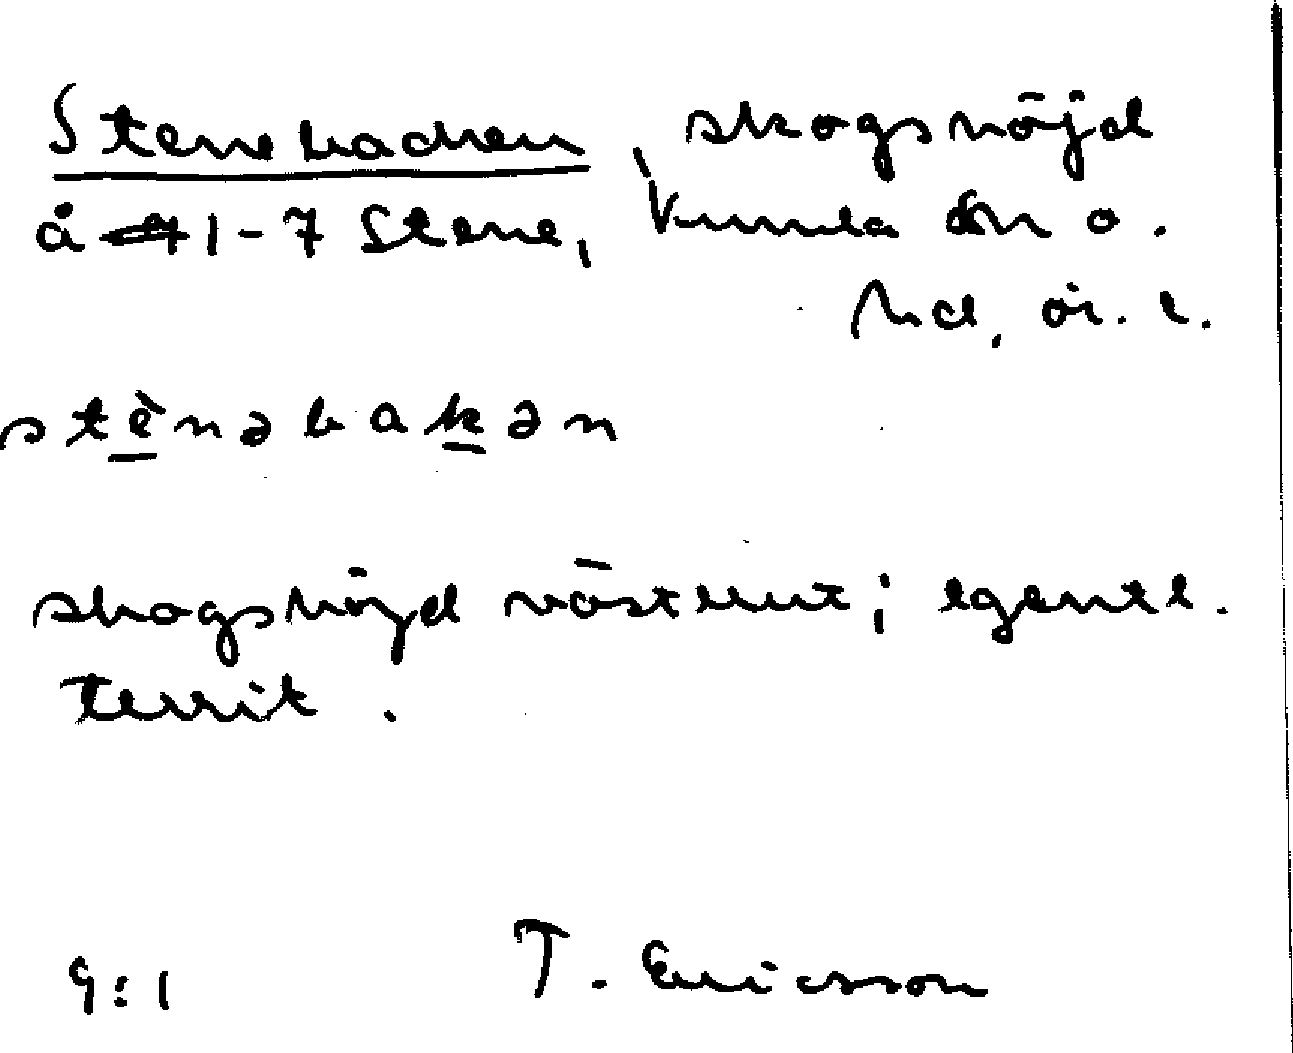 Stenebacken, skogshöjd
å 1-7 Stene, Kumla sn o.
hd, ör. l.
stènəbakən
skogshöjd västerut; egentl.
territ.
9:1 T. Ericsson